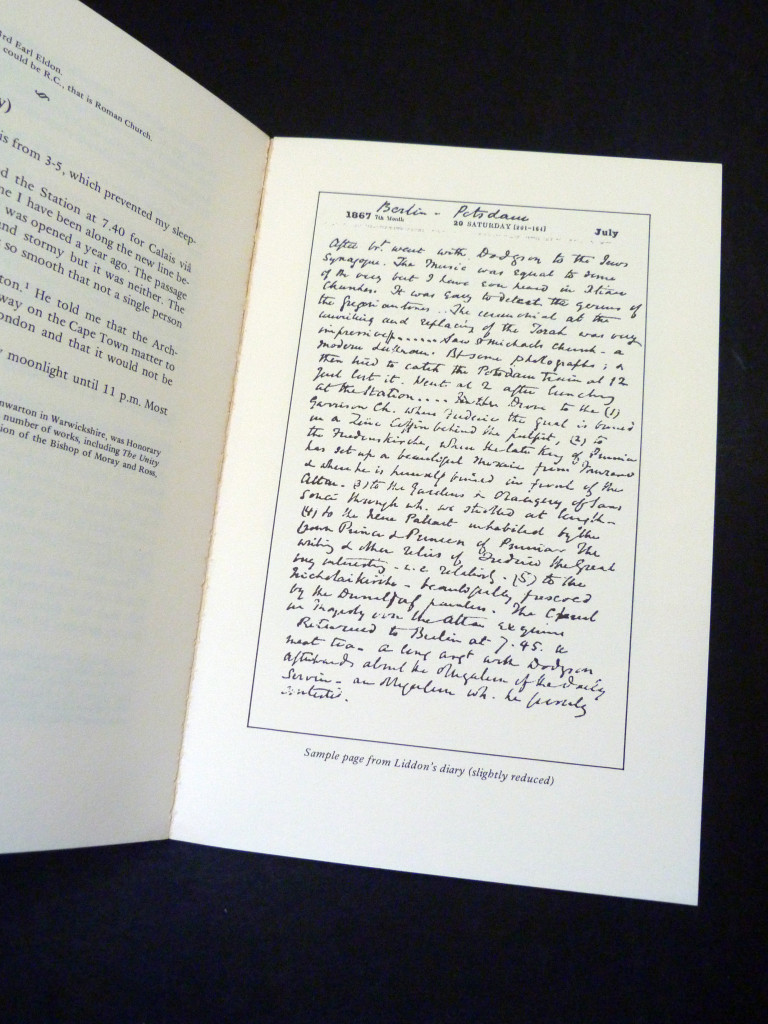 3rd Earl Eldon.
could be R.C., that is Roman Church.
is from 3-5, which prevented my sleep-
d the Station at 7.40 for Calais viâ
ne I have been along the new line be-
was opened a year ago. The passage
and stormy but it was neither. The
so smooth that not a single person
ton.¹ He told me that the Arch-
way on the Cape Town matter to
ondon and that it would not be
moonlight until 11 p.m. Most
nwarton in Warwickshire, was Honorary
number of works, including The Unity
ion of the Bishop of Moray and Ross,
Berlin - Potsdam
1867 7th Month 20 SATURDAY [201-164] July
After bt. went with Dodgson to the Jews
Synagogue. The Music was equal to some
of the very best I have ever heard in Italian
Churches. It was easy to detect the germs of
the Gregorian tones.. The ceremonial at the
unveiling and replacing of the Torah was very
impressive...... Saw S. Michaels Church - a
modern . Bt some photographs ; &
then tried to catch the Potsdam train at 12
Just lost it. Went at 2 after lunching
at the Station.... Drove to the (1)
Garrison Ch. where Frederic the Great is buried
in a Zinc Coffin behind the pulpit, (2) to
the Friedenskirche, where the late King of Prussia
has set up a beautiful Mosaic from Murano
& where he is himself buried in front of the
Altar. (3) to the Gardens & Orangery of Sans
Souci through wh. we strolled at length -
(4) to the Neue Palast inhabited by the
Crown Prince & Princess of Prussia. The
writing & other relics of Frederic the Great
very interesting - (5) to the
Nicholaikirche - beautifully frescoed
by the Dusseldorf painters. The
in Tragedy over the Altar
Returned to Berlin at 7.45. a
meat tea - a long argt with Dodgson
afterwards about the obligation of the daily
Service - an obligation wh. he fiercely
contests.
Sample page from Liddon's diary (slightly reduced)